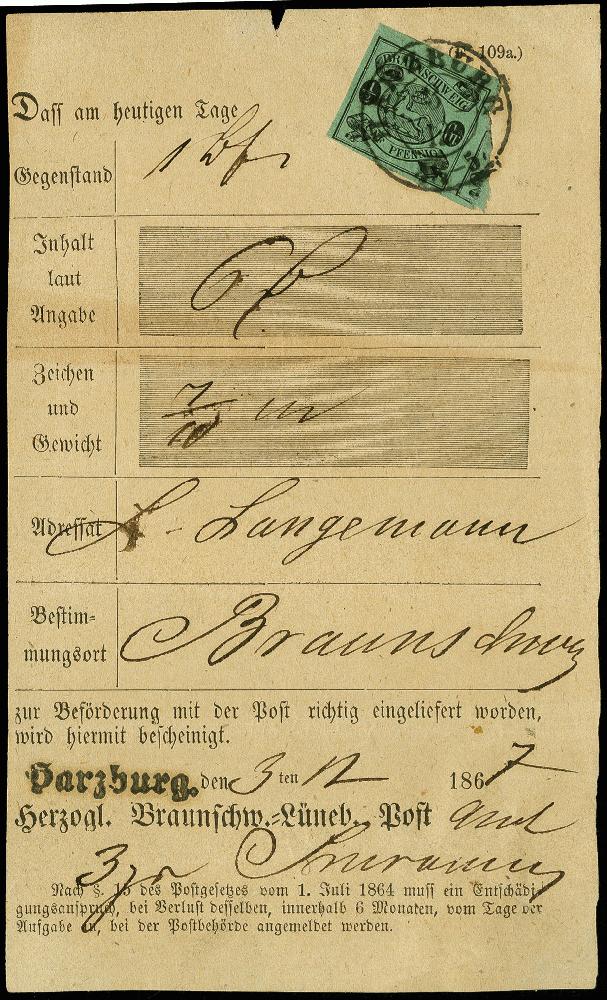 (F. 109a.)
BRAUNSCHWEIG
PFENNIG
BURG
Daſſ am heutigen Tage
Gegenſtand 1 Bf
Inhalt
laut
Angabe
Zeichen
und
Gewicht
7/10
Adreſſat Langemann
Beſtim-
mungsort Braunschweig
zur Beförderung mit der Poſt richtig eingeliefert worden,
wird hiermit beſcheinigt.
Harzburg. den 3 ten 12 1867
Herzogl. Braunſchw.-Lüneb. Poſt amt
3 gr
Nach §. 15 des Poſtgeſetzes vom 1. Juli 1864 muſſ ein Entſchädi-
gungsanſpruch, bei Verluſt deſſelben, innerhalb 6 Monaten, vom Tage der
Aufgabe an, bei der Poſtbehörde angemeldet werden.